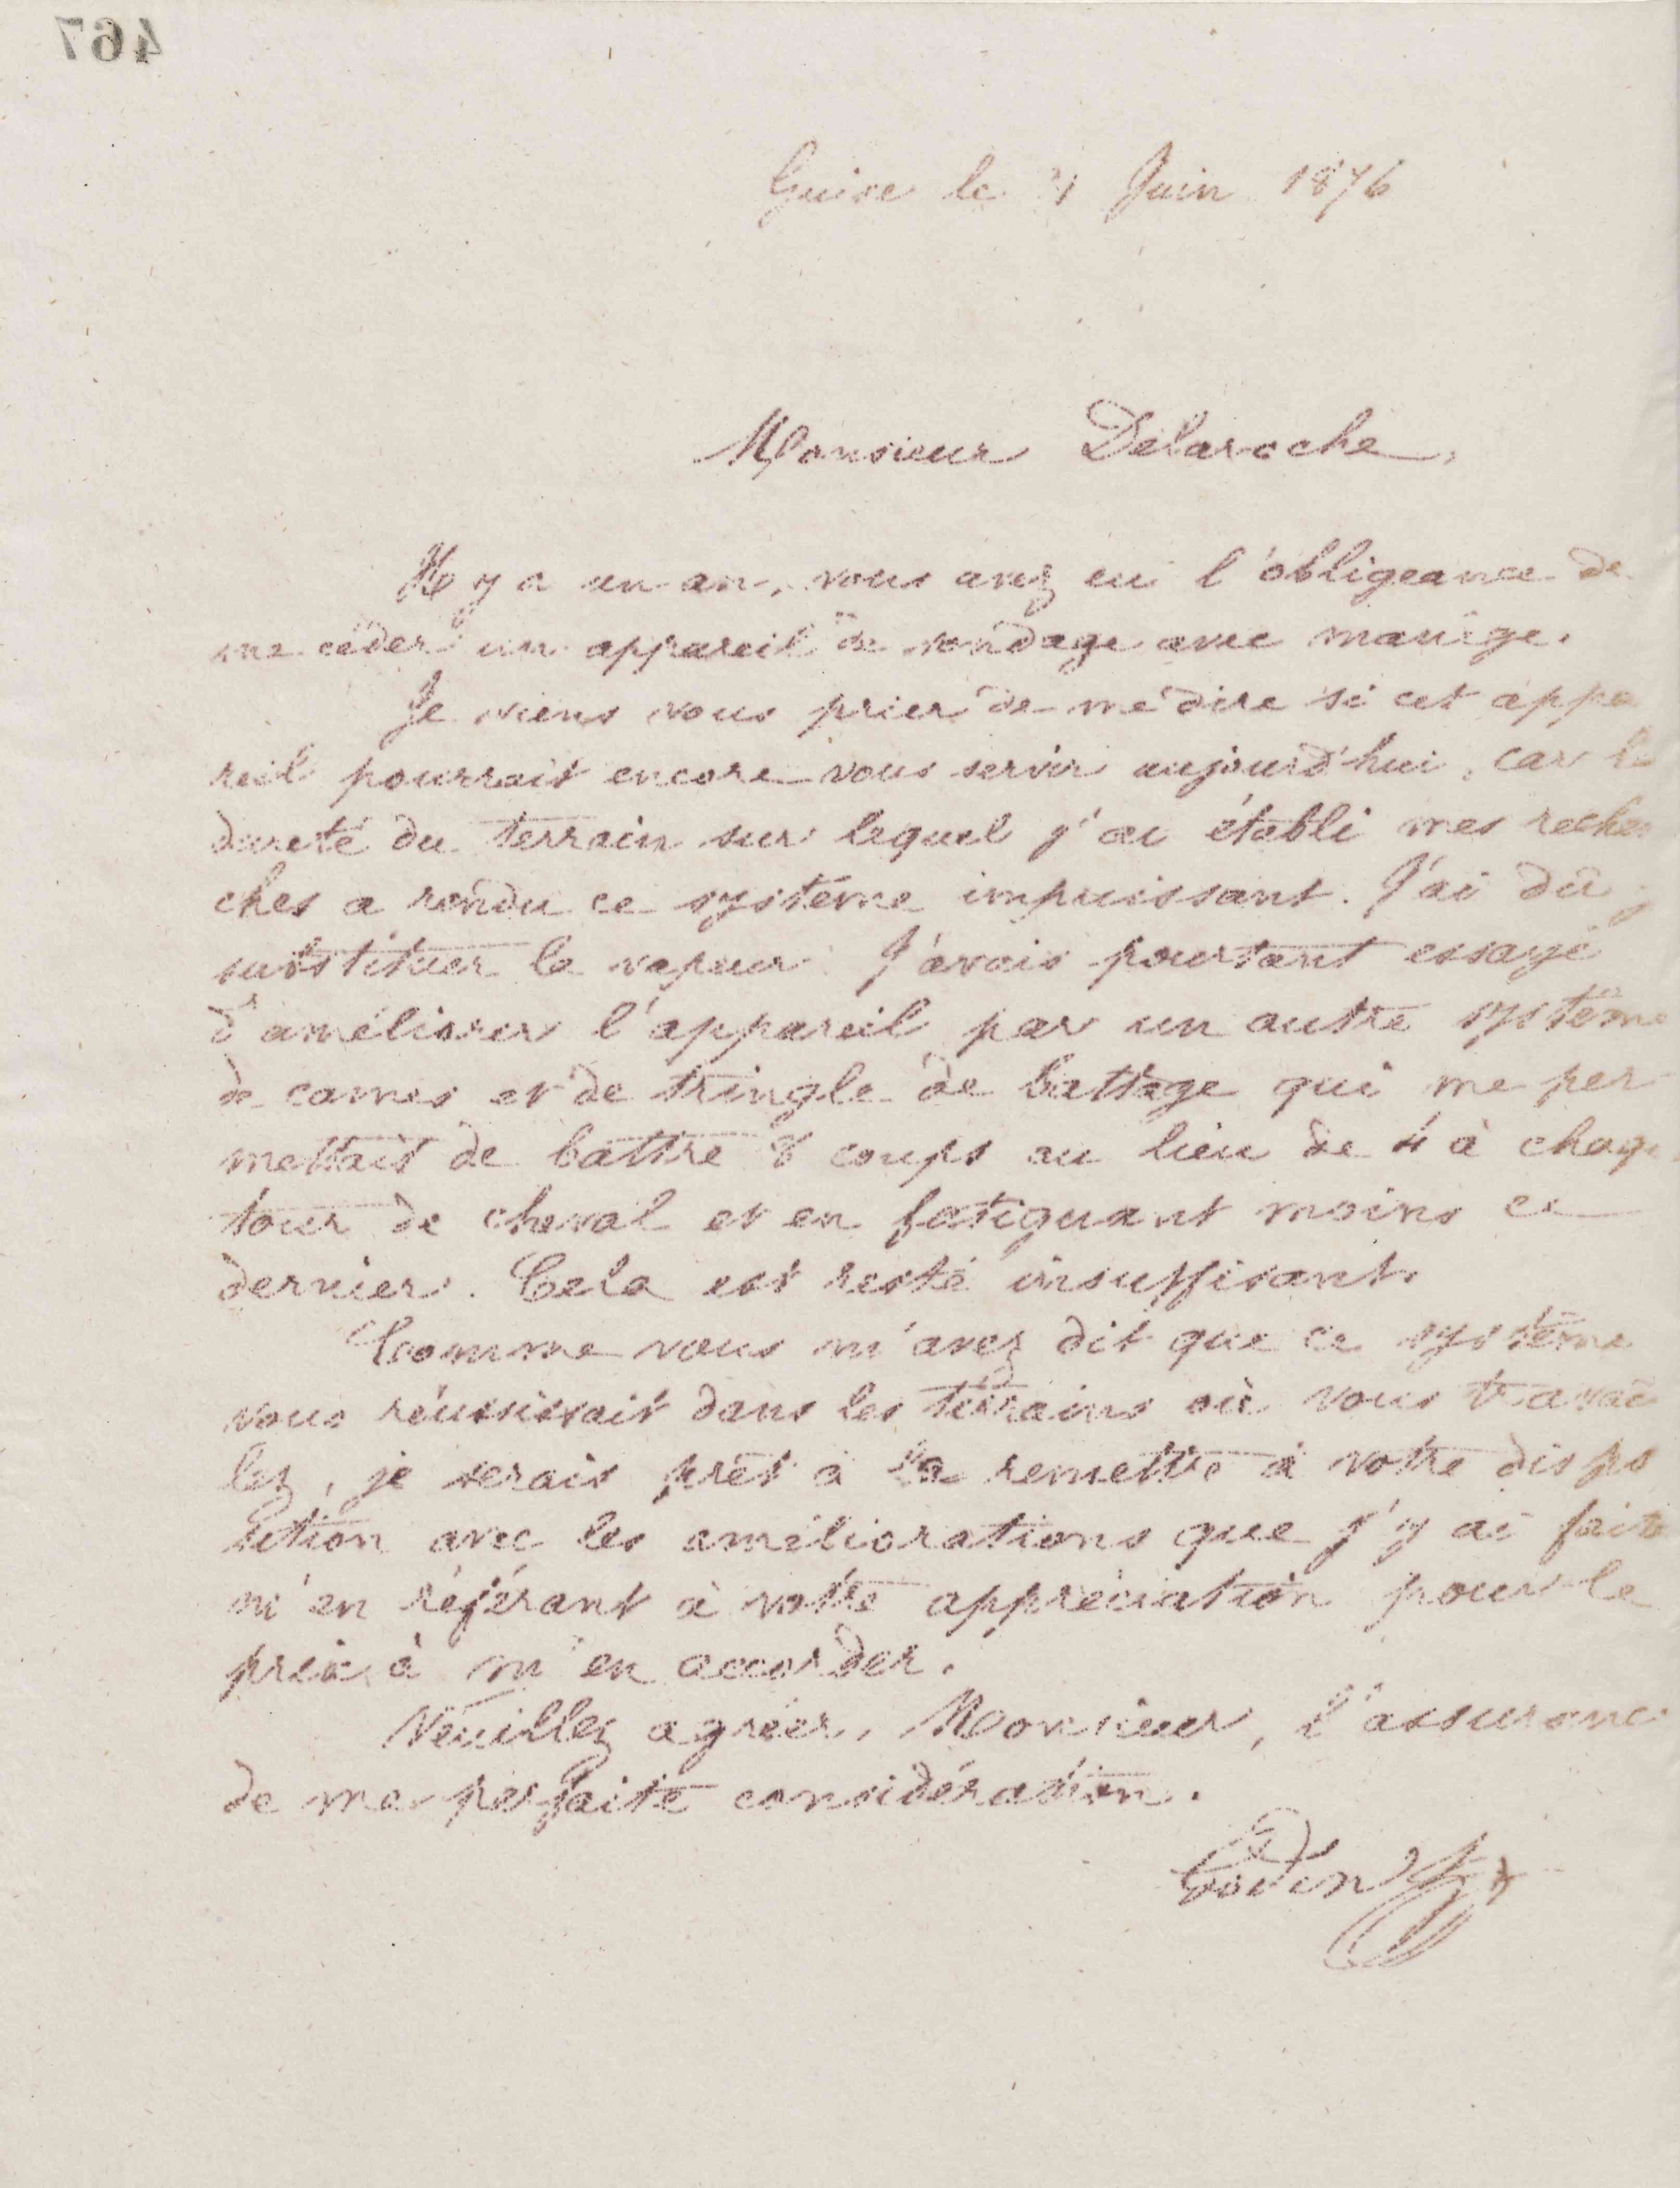 467
Guise le Juin 1876
Monsieur Delaroche,
Il y a un an, vous avez eu l'obligeance de
me céder un appareil de sondage avec manège.
Je viens vous prier de me dire si cet appa
reil pourrait encore vous servir aujourd'hui, car la
dureté du terrain sur lequel j'ai établi mes recher
ches a rendu ce système impuissant. J'ai dû y
substituer la vapeur. J'avais pourtant essayé
d'améliorer l'appareil par un autre système
de cames et de tringle de battage qui me per
mettait de battre 8 coups au lieu de 4 à chaqu
tour de cheval et en fatiguant moins ce
dernier. Cela est resté insuffisant.
Comme vous m'avez dit que ce système
vous réussissait dans les terrains où vous travail
lez, je serais prêt à la remettre à votre dispo
sition avec les améliorations que j'y ai faite
m'en référant à votre appréciation pour le
prix à m'en accorder.
Veuillez agréer, Monsieur, l'assurance
de ma parfaite considération.
Godin